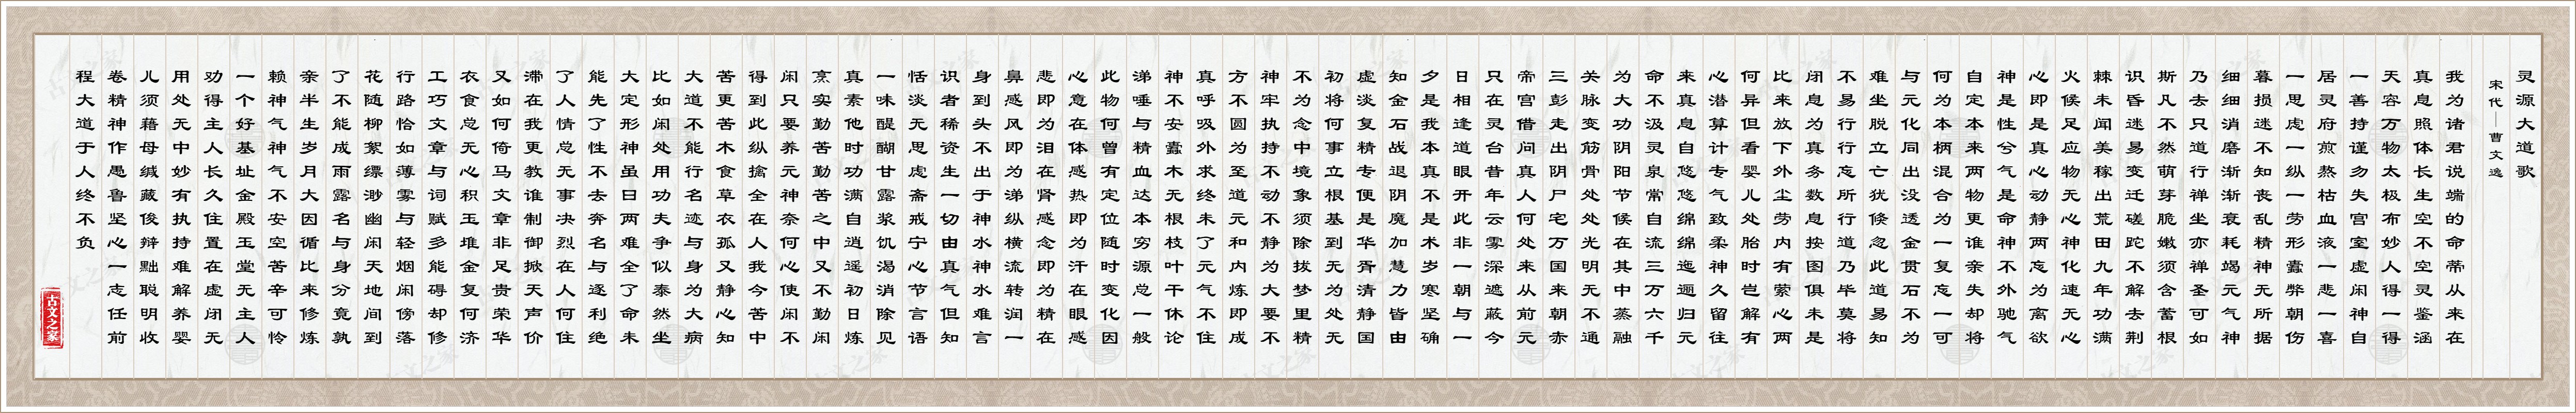 灵源大道歌
宋代—曹文逸
我为诸君说端的命蒂从来在
真息照体长生空不空灵鉴涵
天容万物太极布妙人得一得
一善持谨勿失宫室虚闲神自
居灵府煎熬枯血液一悲一喜
一思虑一纵一劳形蠹弊朝伤
暮损迷不知丧乱精神无所据
细细消磨渐渐衰耗竭元气神
乃去只道行禅坐亦禅圣可如
斯凡不然萌芽脆嫩须含蓄根
识昏迷易变迁磋跎不解去荆
棘未闻美稼出荒田九年功满
火候足应物无心神化速无心
心即是真心动静两忘为离欲
神是性兮气是命神不外驰气
自定本来两物更谁亲失却将
何为本柄混合为一复忘一可
与元化同出没透金贯石不为
难坐脱立亡犹倏忽此道易知
不易行行忘所行道乃毕莫将
闭息为真务数息按图俱未是
比来放下外尘劳内有萦心两
何异但看婴儿处胎时岂解有
心潜算计专气致柔神久留往
来真息自悠悠绵绵迤逦归元
命不汲灵泉常自流三万六千
为大功阴阳节候在其中蒸融
关脉变筋骨处处光明无不通
三彭走出阴尸宅万国来朝赤
帝宫借问真人何处来从前元
只在灵台昔年云雾深遮蔽今
日相逢道眼开此非一朝与一
夕是我本真不是术岁寒坚确
知金石战退阴魔加慧力皆由
虚淡复精专便是华胥清静国
初将何事立根基到无为处无
不为念中境象须除拔梦里精
神牢执持不动不静为大要不
方不圆为至道元和内炼即成
真呼吸外求终未了元气不住
神不安蠹木无根枝叶干休论
涕唾与精血达本穷源总一般
此物何曾有定位随时变化因
心意在体感热即为汗在眼感
悲即为泪在肾感念即为精在
鼻感风即为涕纵横流转润一
身到头不出于神水神水难言
识者稀资生一切由真气但知
恬淡无思虑斋戒宁心节言语
一味醍醐甘露浆饥渴消除见
真素他时功满自逍遥初日炼
烹实勤苦勤苦之中又不勤闲
闲只要养元神奈何心使闲不
得到此纵擒全在人我今苦中
苦更苦木食草衣孤又静心知
大道不能行名迹与身为大病
比如闲处用功夫争似泰然坐
大定形神虽曰两难全了命未
能先了性不去奔名与逐利绝
了人情总无事决烈在人何住
滞在我更教谁制御掀天声价
又如何倚马文章非足贵荣华
衣食总无心积玉堆金复何济
工巧文章与词赋多能碍却修
行路恰如薄雾与轻烟闲傍落
花随柳絮缥渺幽闲天地间到
了不能成雨露名与身分竟孰
亲半生岁月大因循比来修炼
赖神气神气不安空苦辛可怜
一个好基址金殿玉堂无主人
劝得主人长久住置在虚闭无
用处无中妙有执持难解养婴
儿须藉母缄藏俊辩黜聪明收
卷精神作愚鲁坚心一志任前
程大道于人终不负
古文之家